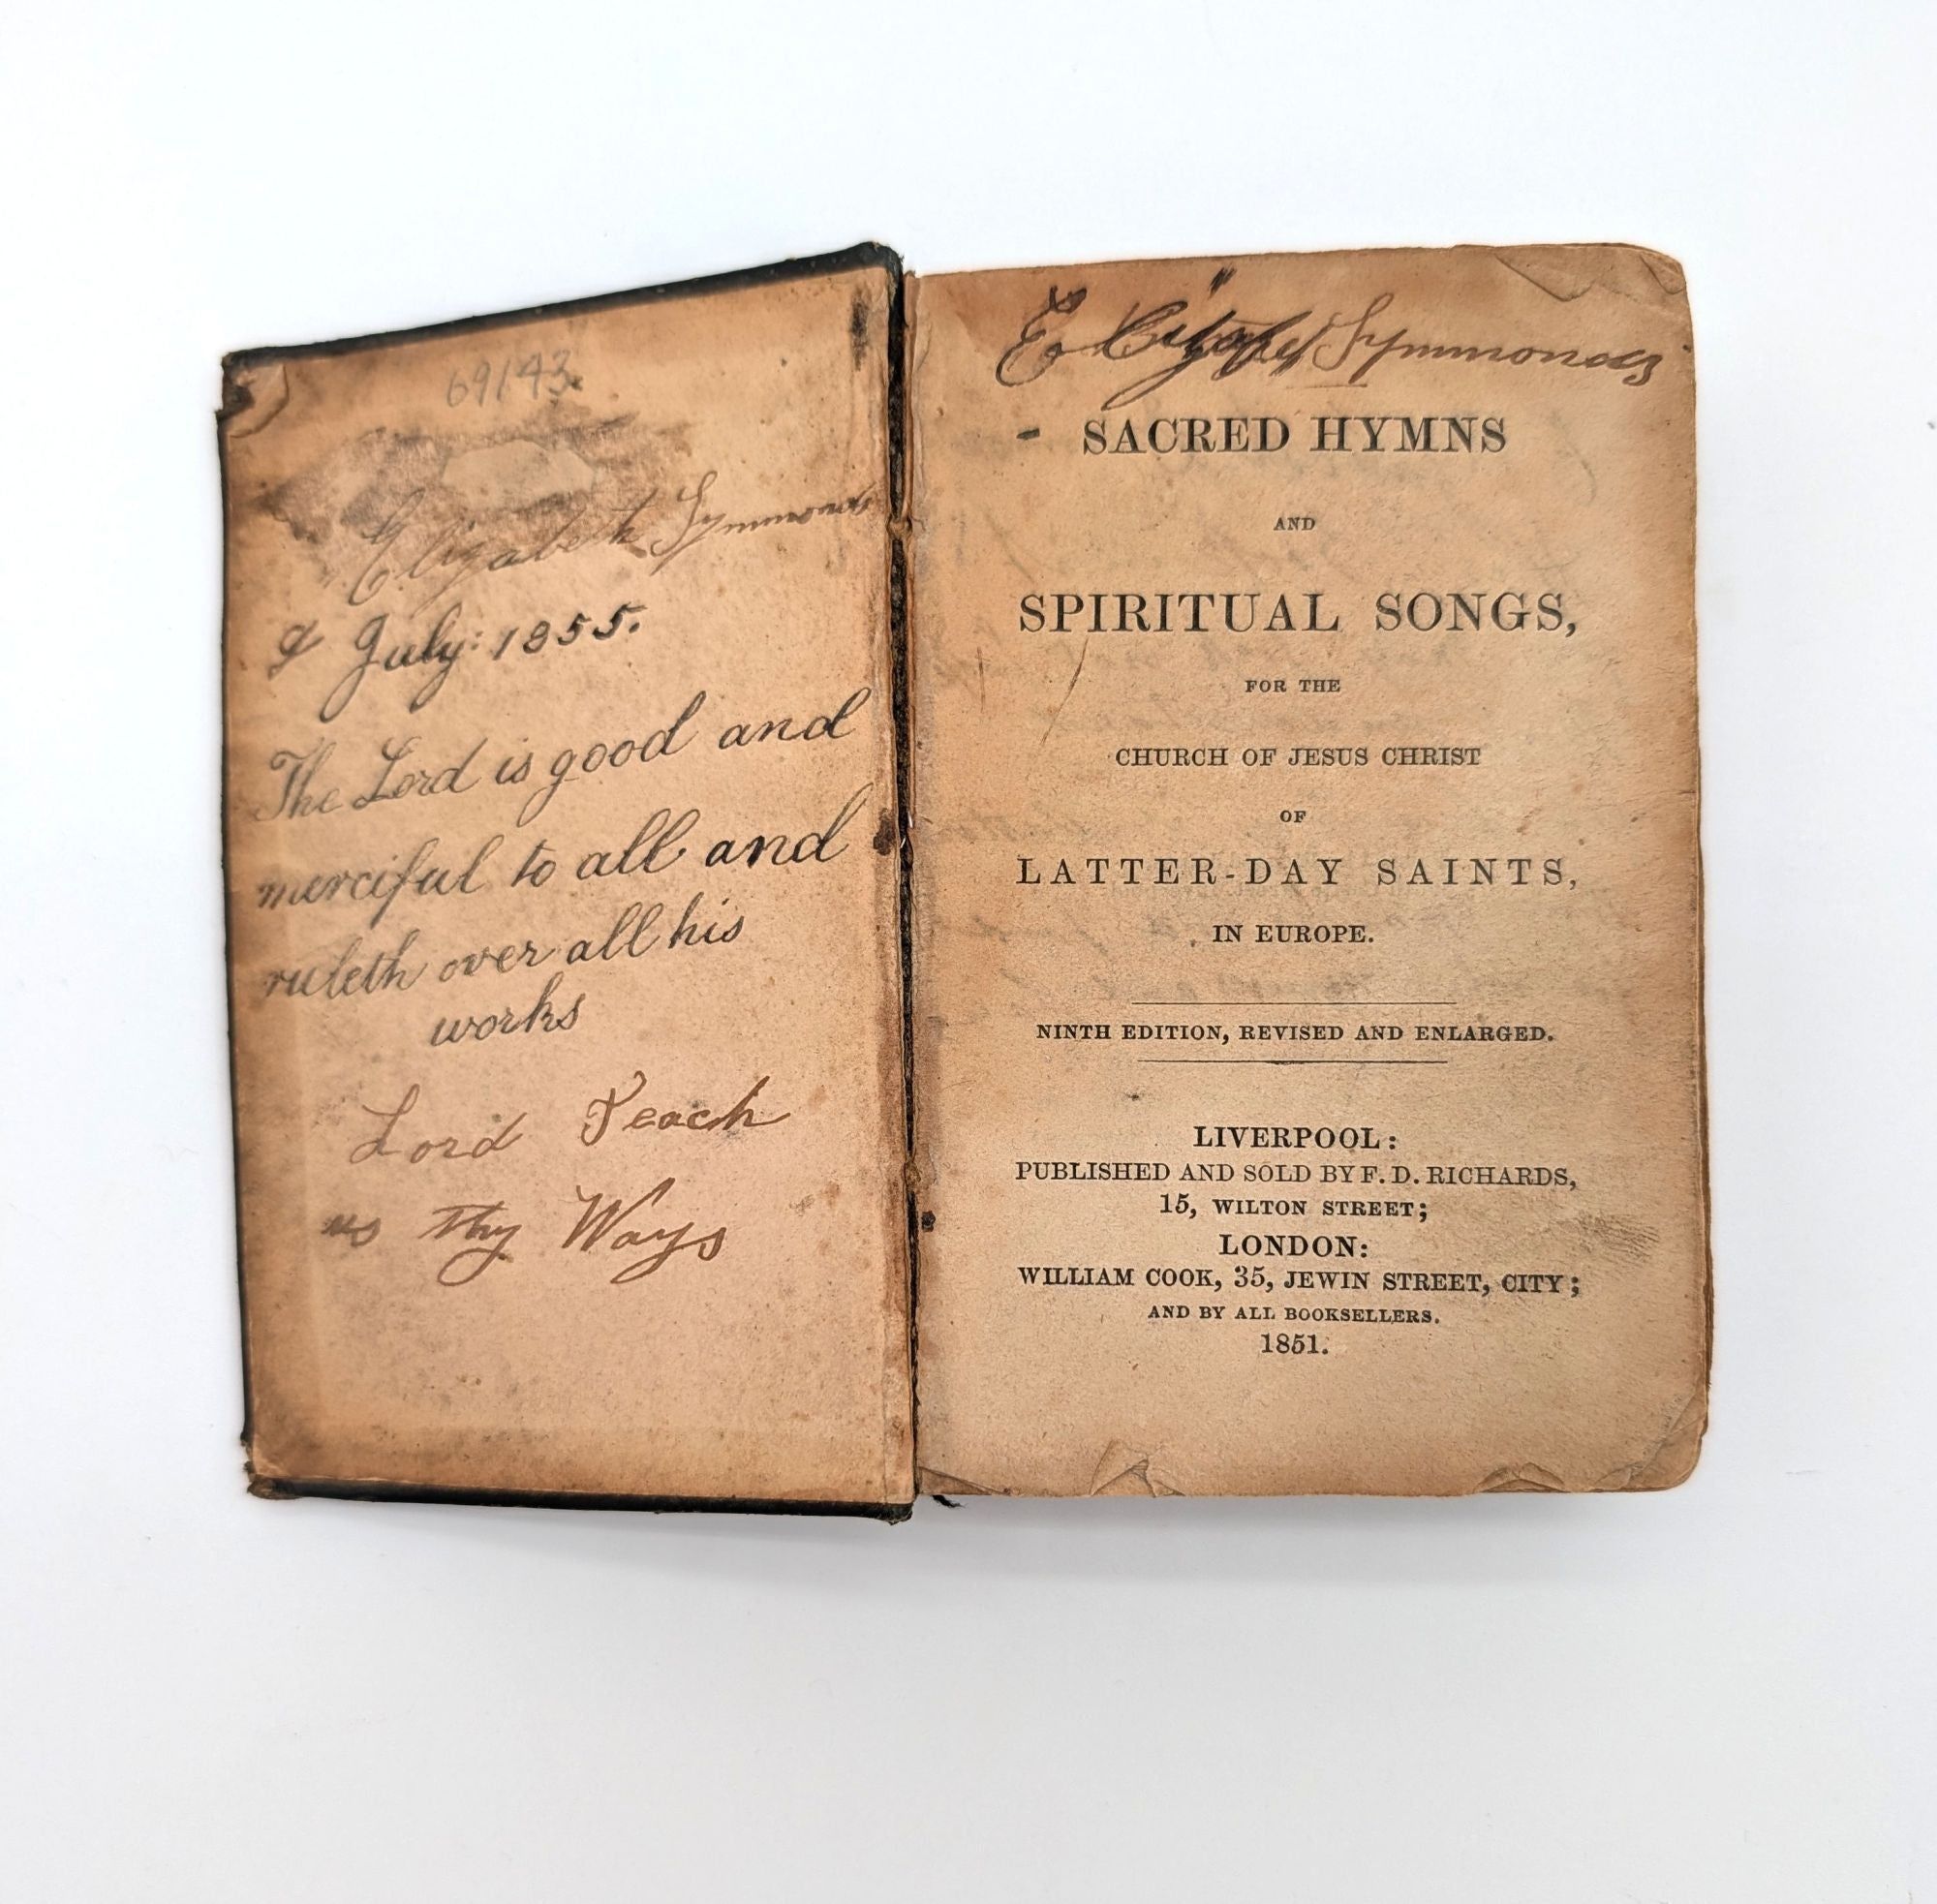 69143
Elizabeth Symmonds
July: 1855.
The Lord is good and
merciful to all and
ruleth over all his
works
Lord Teach
us Thy Ways
Elizabeth Symmonds
SACRED HYMNS
AND
SPIRITUAL SONGS,
FOR THE
CHURCH OF JESUS CHRIST
OF
LATTER-DAY SAINTS,
IN EUROPE.
NINTH EDITION, REVISED AND ENLARGED.
LIVERPOOL:
PUBLISHED AND SOLD BY F. D. RICHARDS,
15, WILTON STREET;
LONDON:
WILLIAM COOK, 35, JEWIN STREET, CITY;
AND BY ALL BOOKSELLERS.
1851.